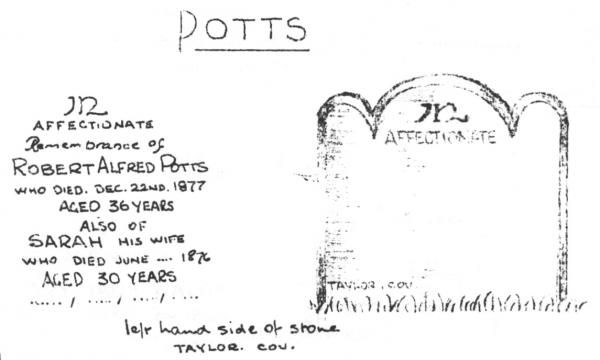 POTTS
In
AFFECTIONATE
Remembrance of
ROBERT ALFRED POTTS
WHO DIED. DEC. 22ND. 1877
AGED 36 YEARS
ALSO OF
SARAH HIS WIFE
WHO DIED JUNE .... 1876
AGED 30 YEARS
...... / ..... / ..... / ....
In
AFFECTIONATE
TAYLOR. COV.
left hand side of stone
TAYLOR. COV.